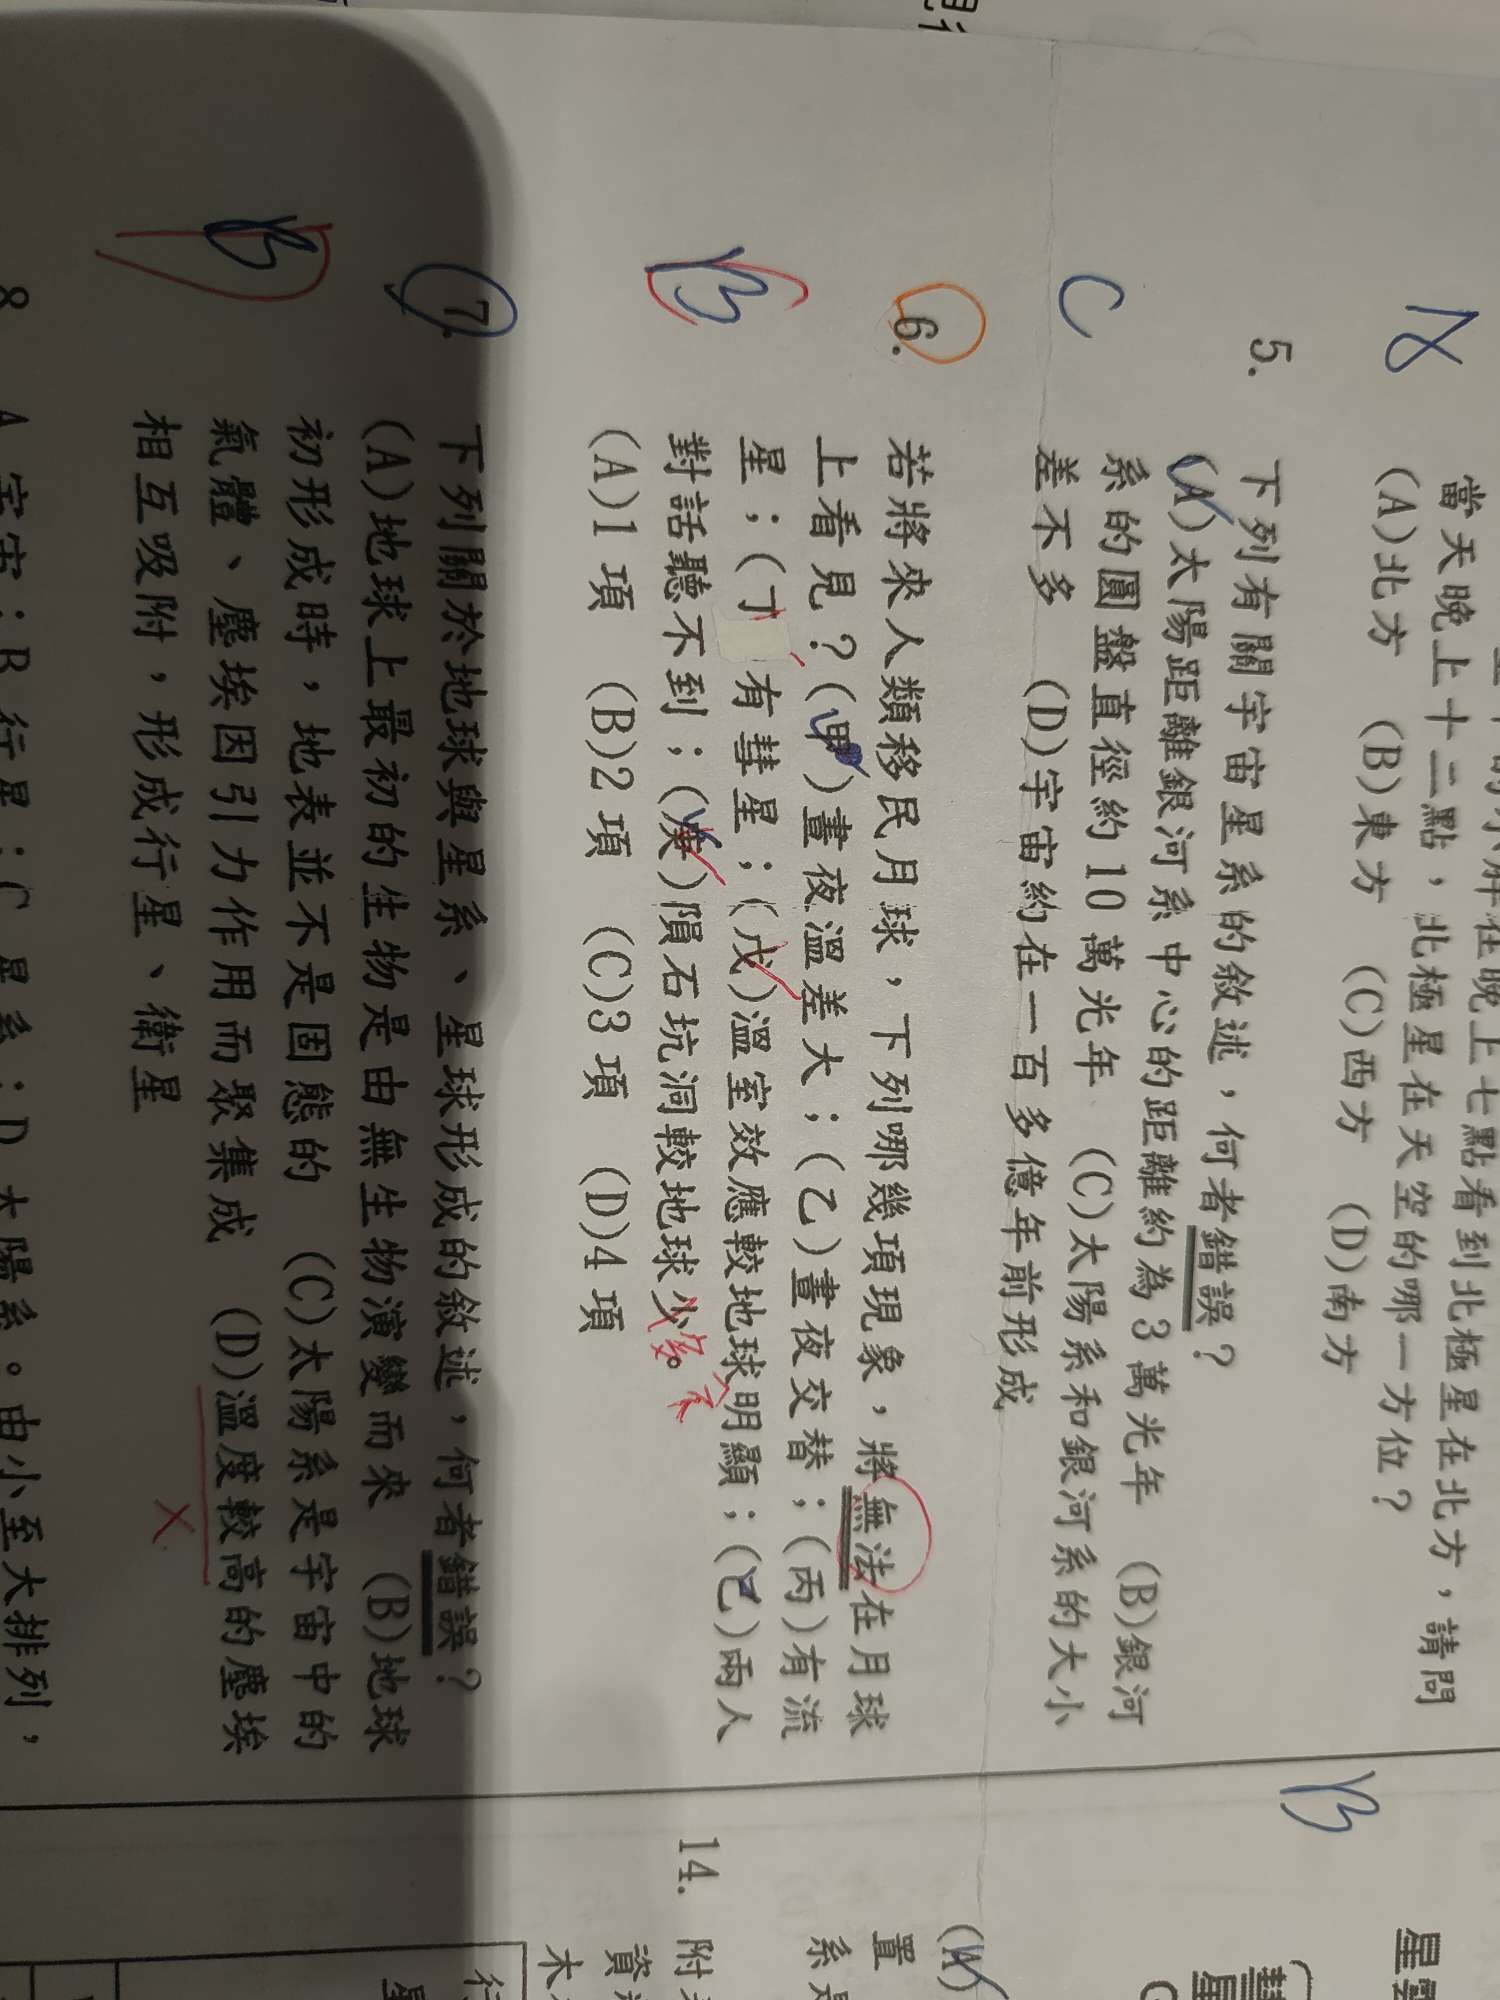 當天晚上十二點，北極星在天空的哪一方位？
(A)北方 (B)東方 (C)西方 (D)南方
5. 下列有關宇宙星系的敘述，何者錯誤？
(A)太陽距離銀河系中心的距離約為3萬光年 (B)銀河
系的圓盤直徑約10萬光年 (C)太陽系和銀河系的大小
差不多 (D)宇宙約在一百多億年前形成
C
6. 若將來人類移民月球，下列哪幾項現象，將無法在月球
上看見？(甲)晝夜溫差大；(乙)晝夜交替；(丙)有流
星；(丁 有彗星；(戊)溫室效應較地球明顯；(己)兩人
對話聽不到；(庚)隕石坑洞較地球少多。
(A)1項 (B)2項 (C)3項 (D)4項
B
7. 下列關於地球與星系、星球形成的敘述，何者錯誤？
(A)地球上最初的生物是由無生物演變而來 (B)地球
初形成時，地表並不是固態的 (C)太陽系是宇宙中的
氣體、塵埃因引力作用而聚集成 (D)溫度較高的塵埃
相互吸附，形成行星、衛星
B
8 A 宇宙；B 行星；C 星系；D 太陽系。由小至大排列，
B
14. 附
資
木
置
系
行
星